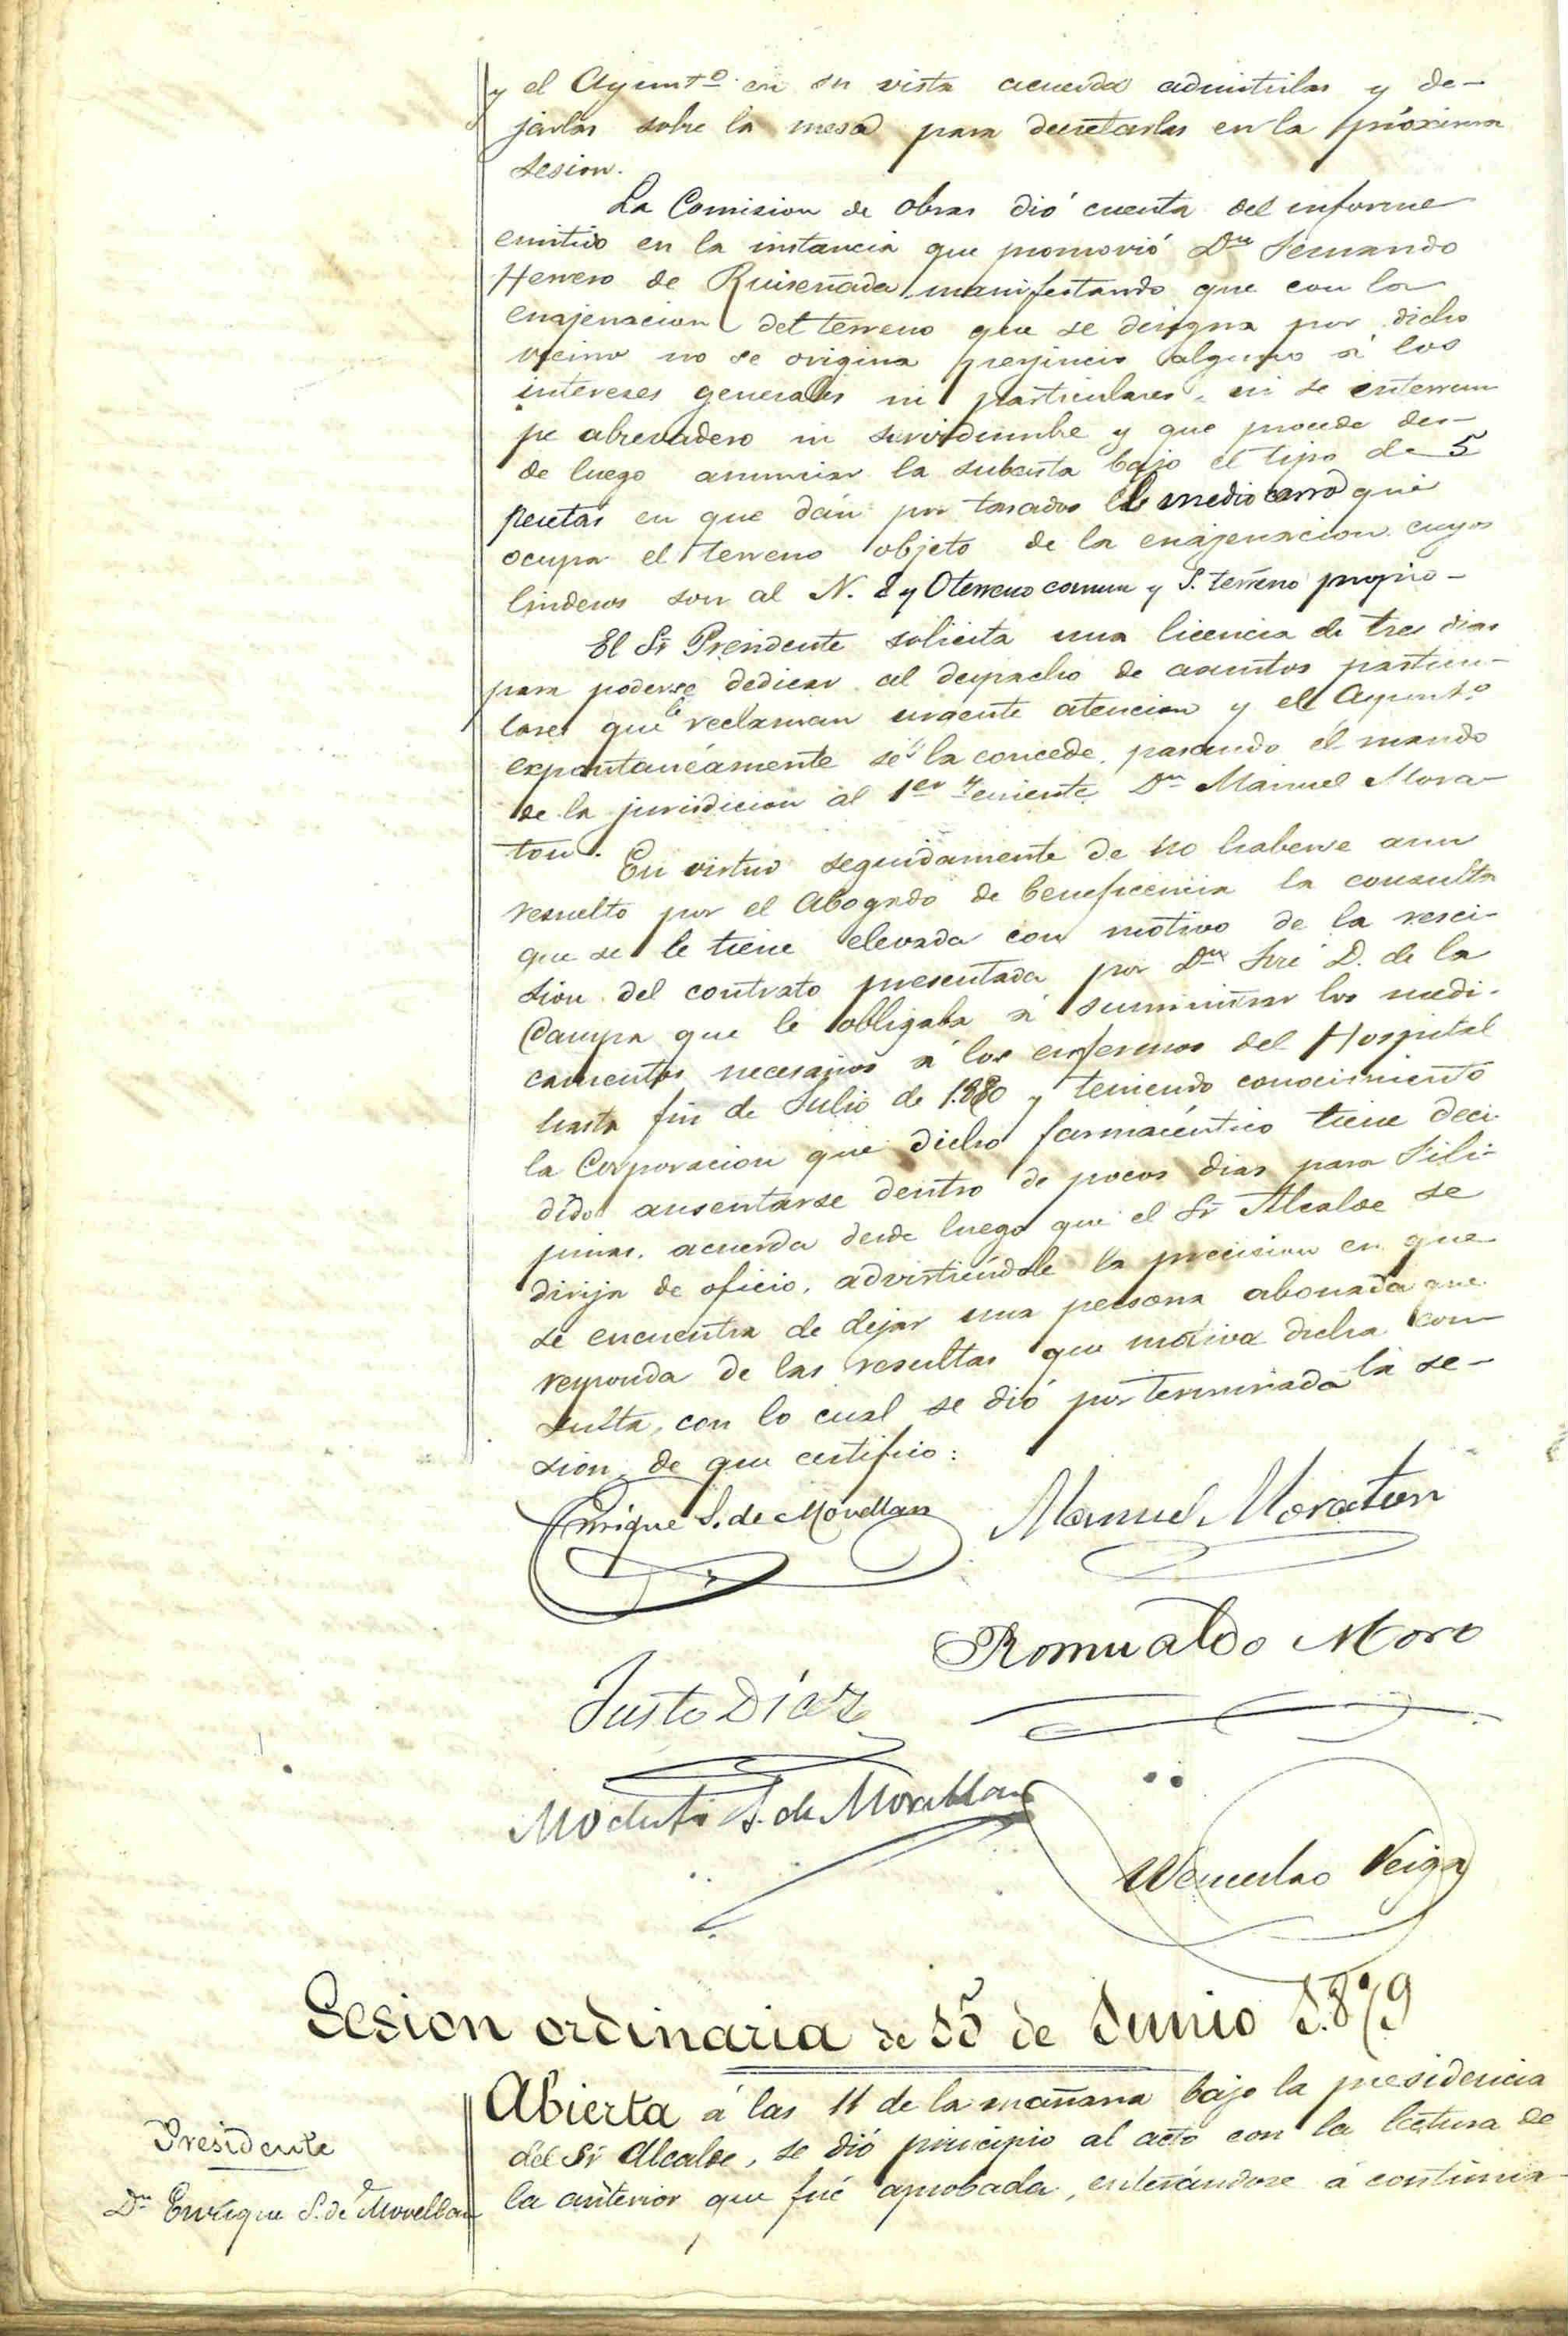 y el Ayunt.º en su vista acuerda admitirlas y de-
jarlas sobre la mesa para decretarlas en la próxima
sesion.
La Comision de Obras dió cuenta del informe
emitido en la instancia que promovió Dn Fernando
Herrero de Ruiseñada manifestando que con la
enajenacion del terreno que se designa por dicho
vecino no se origina perjuicio alguno á los
intereses generales ni particulares, ni se interrum
pe abrevadero ni servidumbre y que procede des-
de luego anunciar la subasta bajo el tipo de 5
pesetas en que dán por tasados el medio carro que
ocupa el terreno objeto de la enajenacion cuyos
linderos son al N. E y O terreno comun y S. terreno propio-
El Sr Presidente solicita una licencia de tres dias
para poderse dedicar al despacho de asuntos particu-
lares que le reclaman urgente atencion y el Ayunt.º
expontanéamente sé la concede, pasando el mando
de la jurisdicion al 1er Teniente Dn Manuel Mora-
ton.
En virtud seguidamente de no haberse aun
resuelto por el Abogado de beneficencia la consulta
que se le tiene elevada con motivo de la resci-
sion del contrato presentada por Dn José D. de la
Campa que le obligaba á suministrar los medi-
camentos necesarios á los enfermos del Hospital
hasta fin de Julio de 1.880 y teniendo conocimiento
la Corporacion que dicho farmacéutico tiene deci-
dido ausentarse dentro de pocos dias para Fili-
pinas, acuerda desde luego que el Sr Alcalde se
dirija de oficio, advirtiéndole la precision en que
se encuentra de dejar una persona abonada que
responda de las resultas que motiva dicha con-
sulta, con lo cual se dió por terminada la se-
sion, de que certifico:
Enrique S. de Movellan Manuel Moraton
Romualdo Moro
Justo Díaz
Modesto S. de Movellan
Wenceslao Veiga
Sesion ordinaria de 15 de Junio 1.879
Presidente
Dn Enrique S. de Movellan
Abierta á las 11 de la mañana bajo la presidencia
del Sr Alcalde, se dió principio al acto con la lectura de
la anterior que fué aprobada, enterándose á continua-